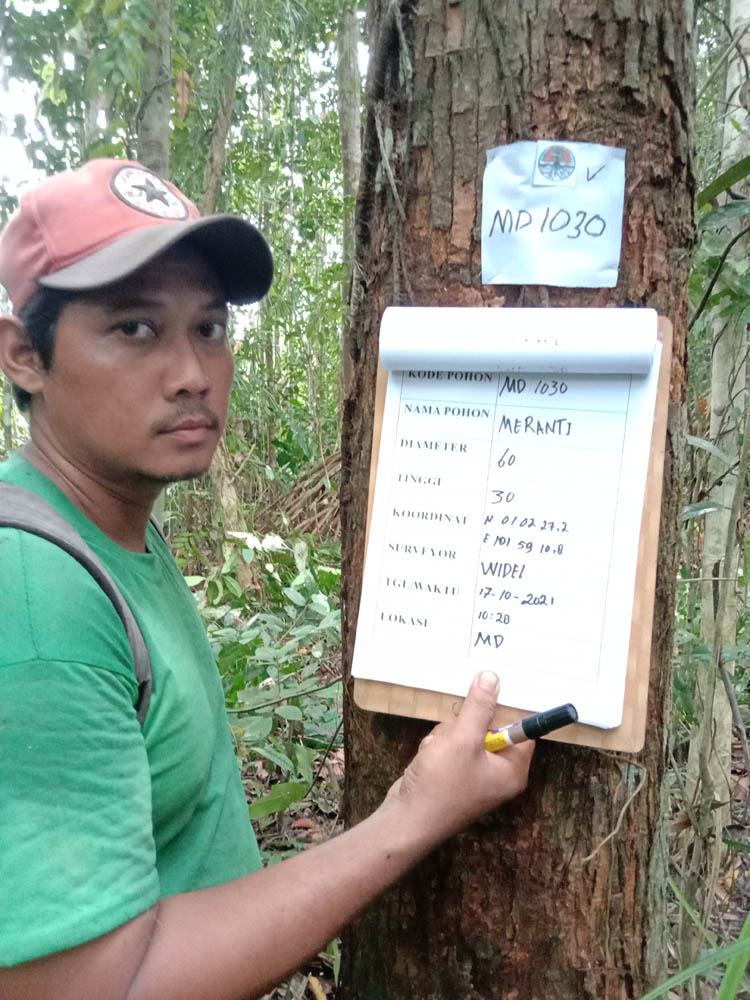 MD 1030
KODE POHON MD 1030
NAMA POHON MERANTI
DIAMETER 60
TINGGI 30
KOORDINAT N 01 02 27.2
E 101 59 10.8
SURVEYOR WIDEI
TGL/WAKTU 17-10-2021
10:28
LOKASI MD